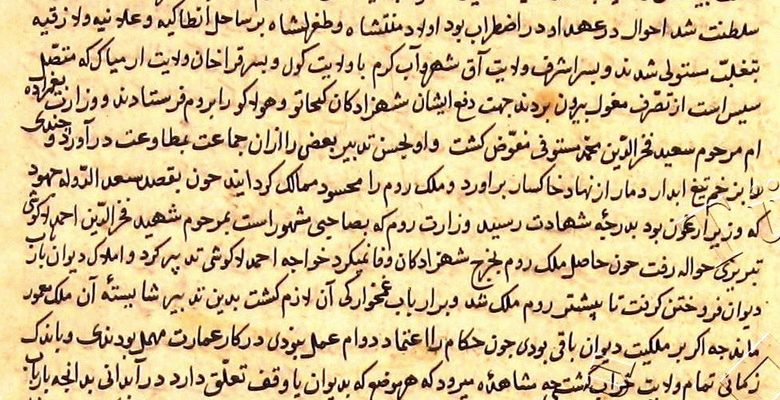 سلطنت شد احوال در عهد او در اضطراب بود اولاد منتشاه و طغرلشاه بر ساحل انطاکیه و علائیه ولاذقیه
بتغلب مستولی شدند و پسر اشرف ولایت آق شهر و آب کرم با ولایت کول و پسر قراخان ولایت ارمیاک که متصل
سیس است از تصرف مغول بیرون بردند جهت دفع ایشان شهزادکان کنجاتو و هولاکو را بروم فرستادند و وزارت
ام مرحوم سعید فخر الدین محمد مستوفی مفوض کشت و او بحسن تدبیر بعضی را از ان جماعت بمطاوعت در آورد و چندی
را بزخم تیغ ابدار دمار از نهاد خاکسار براورد و ملک روم را محسود ممالک کردانید چون بقصد سعد الدوله جهود
که وزیر ارغون بود بدرجه شهادت رسید وزارت روم که بصاحبی مشهور است بمرحوم شهید فخر الدین احمد لاکوشی
تبریزی حواله رفت چون حاصل ملک روم بخرج شهزادکان وفا نمیکرد خواجه احمد لاکوشی تدبیر کرد و املاک دیوان بارباب
دیوان فروختن کرفت تا بیشتر روم ملک شد و بر ارباب غمخوارکی آن لازم کشت بدین تدبیر شایسته آن ملک معمور
ماند چه اکر بر ملکیت دیوان باقی بودی چون حکام را اعتماد دوام عمل نبودی در کار عمارت مهمل بودندی و باندک
زمانی تمام ولایت خراب کشت چه مشاهده میرود که هر موضع که بدیوان یا وقف تعلق دارد در آبدانی بدانچه بارباب